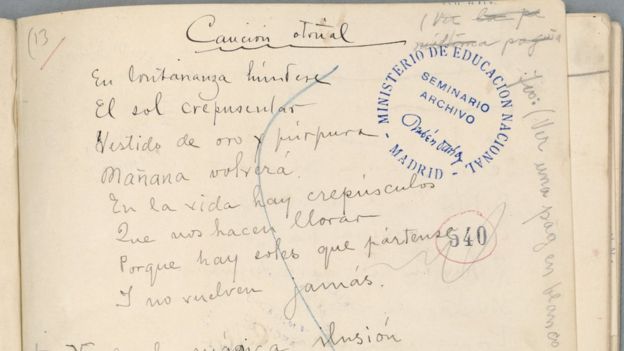 (13
Canción otoñal
(Ver la pe
última pagina
En lontananza húndese
El sol crepuscular
Vestido de oro y púrpura
Mañana volverá.
En la vida hay crepúsculos
Que nos hacen llorar
Porque hay soles que pártense
I no vuelven jamás.
ilusión
MINISTERIO DE EDUCACIÓN NACIONAL
- MADRID -
SEMINARIO
ARCHIVO
Rubén Darío
540
(Ver una pag en blanco